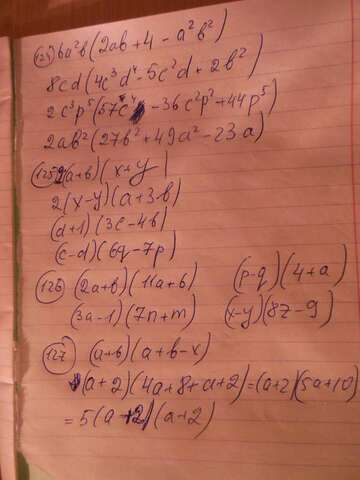 124) 6a²b(2ab+4-a²b²)
8cd(4c³d⁴-5c²d+2b²)
2c³p⁵(57c⁴-36c²p²+44p⁵)
2ab²(27b²+49a²-23a)
125) (a+b)(x+y)
2(x-y)(a+3-b)
(d+1)(3c-4b)
(c-d)(6q-7p)
126) (2a+b)(11a+b) (p-q)(4+a)
(3a-1)(7n+m) (x-y)(8z-9)
127) (a+b)(a+b-x)
(a+2)(4a+8+a+2)=(a+2)(5a+10)
=5(a+2)(a+2)